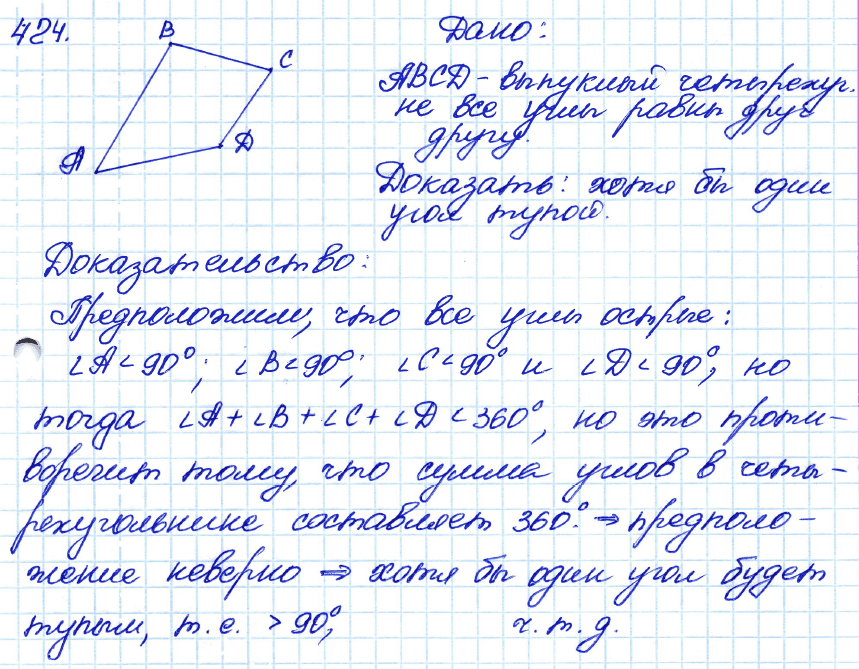 424.
B
C
A
D
Дано:
ABCD - выпуклый четырехуг.
не все углы равны друг
другу.
Доказать: хотя бы один
угол тупой.
Доказательство:
Предположим, что все углы острые:
∠A < 90°; ∠B < 90°; ∠C < 90° и ∠D < 90°, но
тогда ∠A + ∠B + ∠C + ∠D < 360°, но это проти-
воречит тому, что сумма углов в четы-
рехугольнике составляет 360°. ⇒ предполо-
жение неверно ⇒ хотя бы один угол будет
тупым, т.е. > 90°,
ч.т.д.